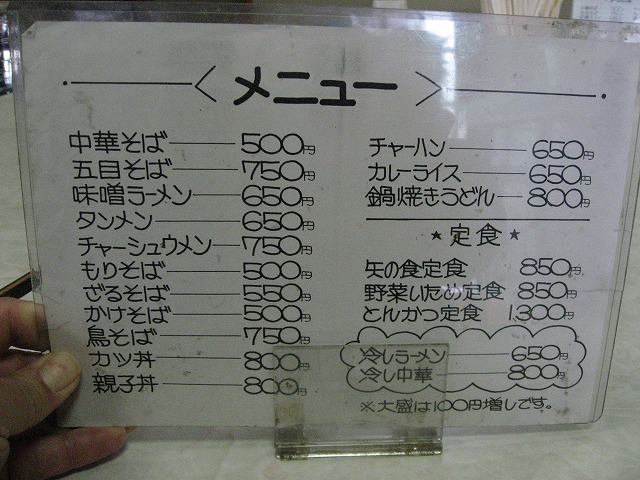 メニュー
中華そば 500円
五目そば 750円
味噌ラーメン 650円
タンメン 650円
チャーシュウメン 750円
もりそば 500円
ざるそば 550円
かけそば 500円
鳥そば 750円
カツ丼 800円
親子丼 800円
チャーハン 650円
カレーライス 650円
鍋焼きうどん 800円
★定食★
矢の食定食 850円
野菜いため定食 850円
とんかつ定食 1,300円
冷しラーメン 650円
冷し中華 800円
※大盛は100円増しです。